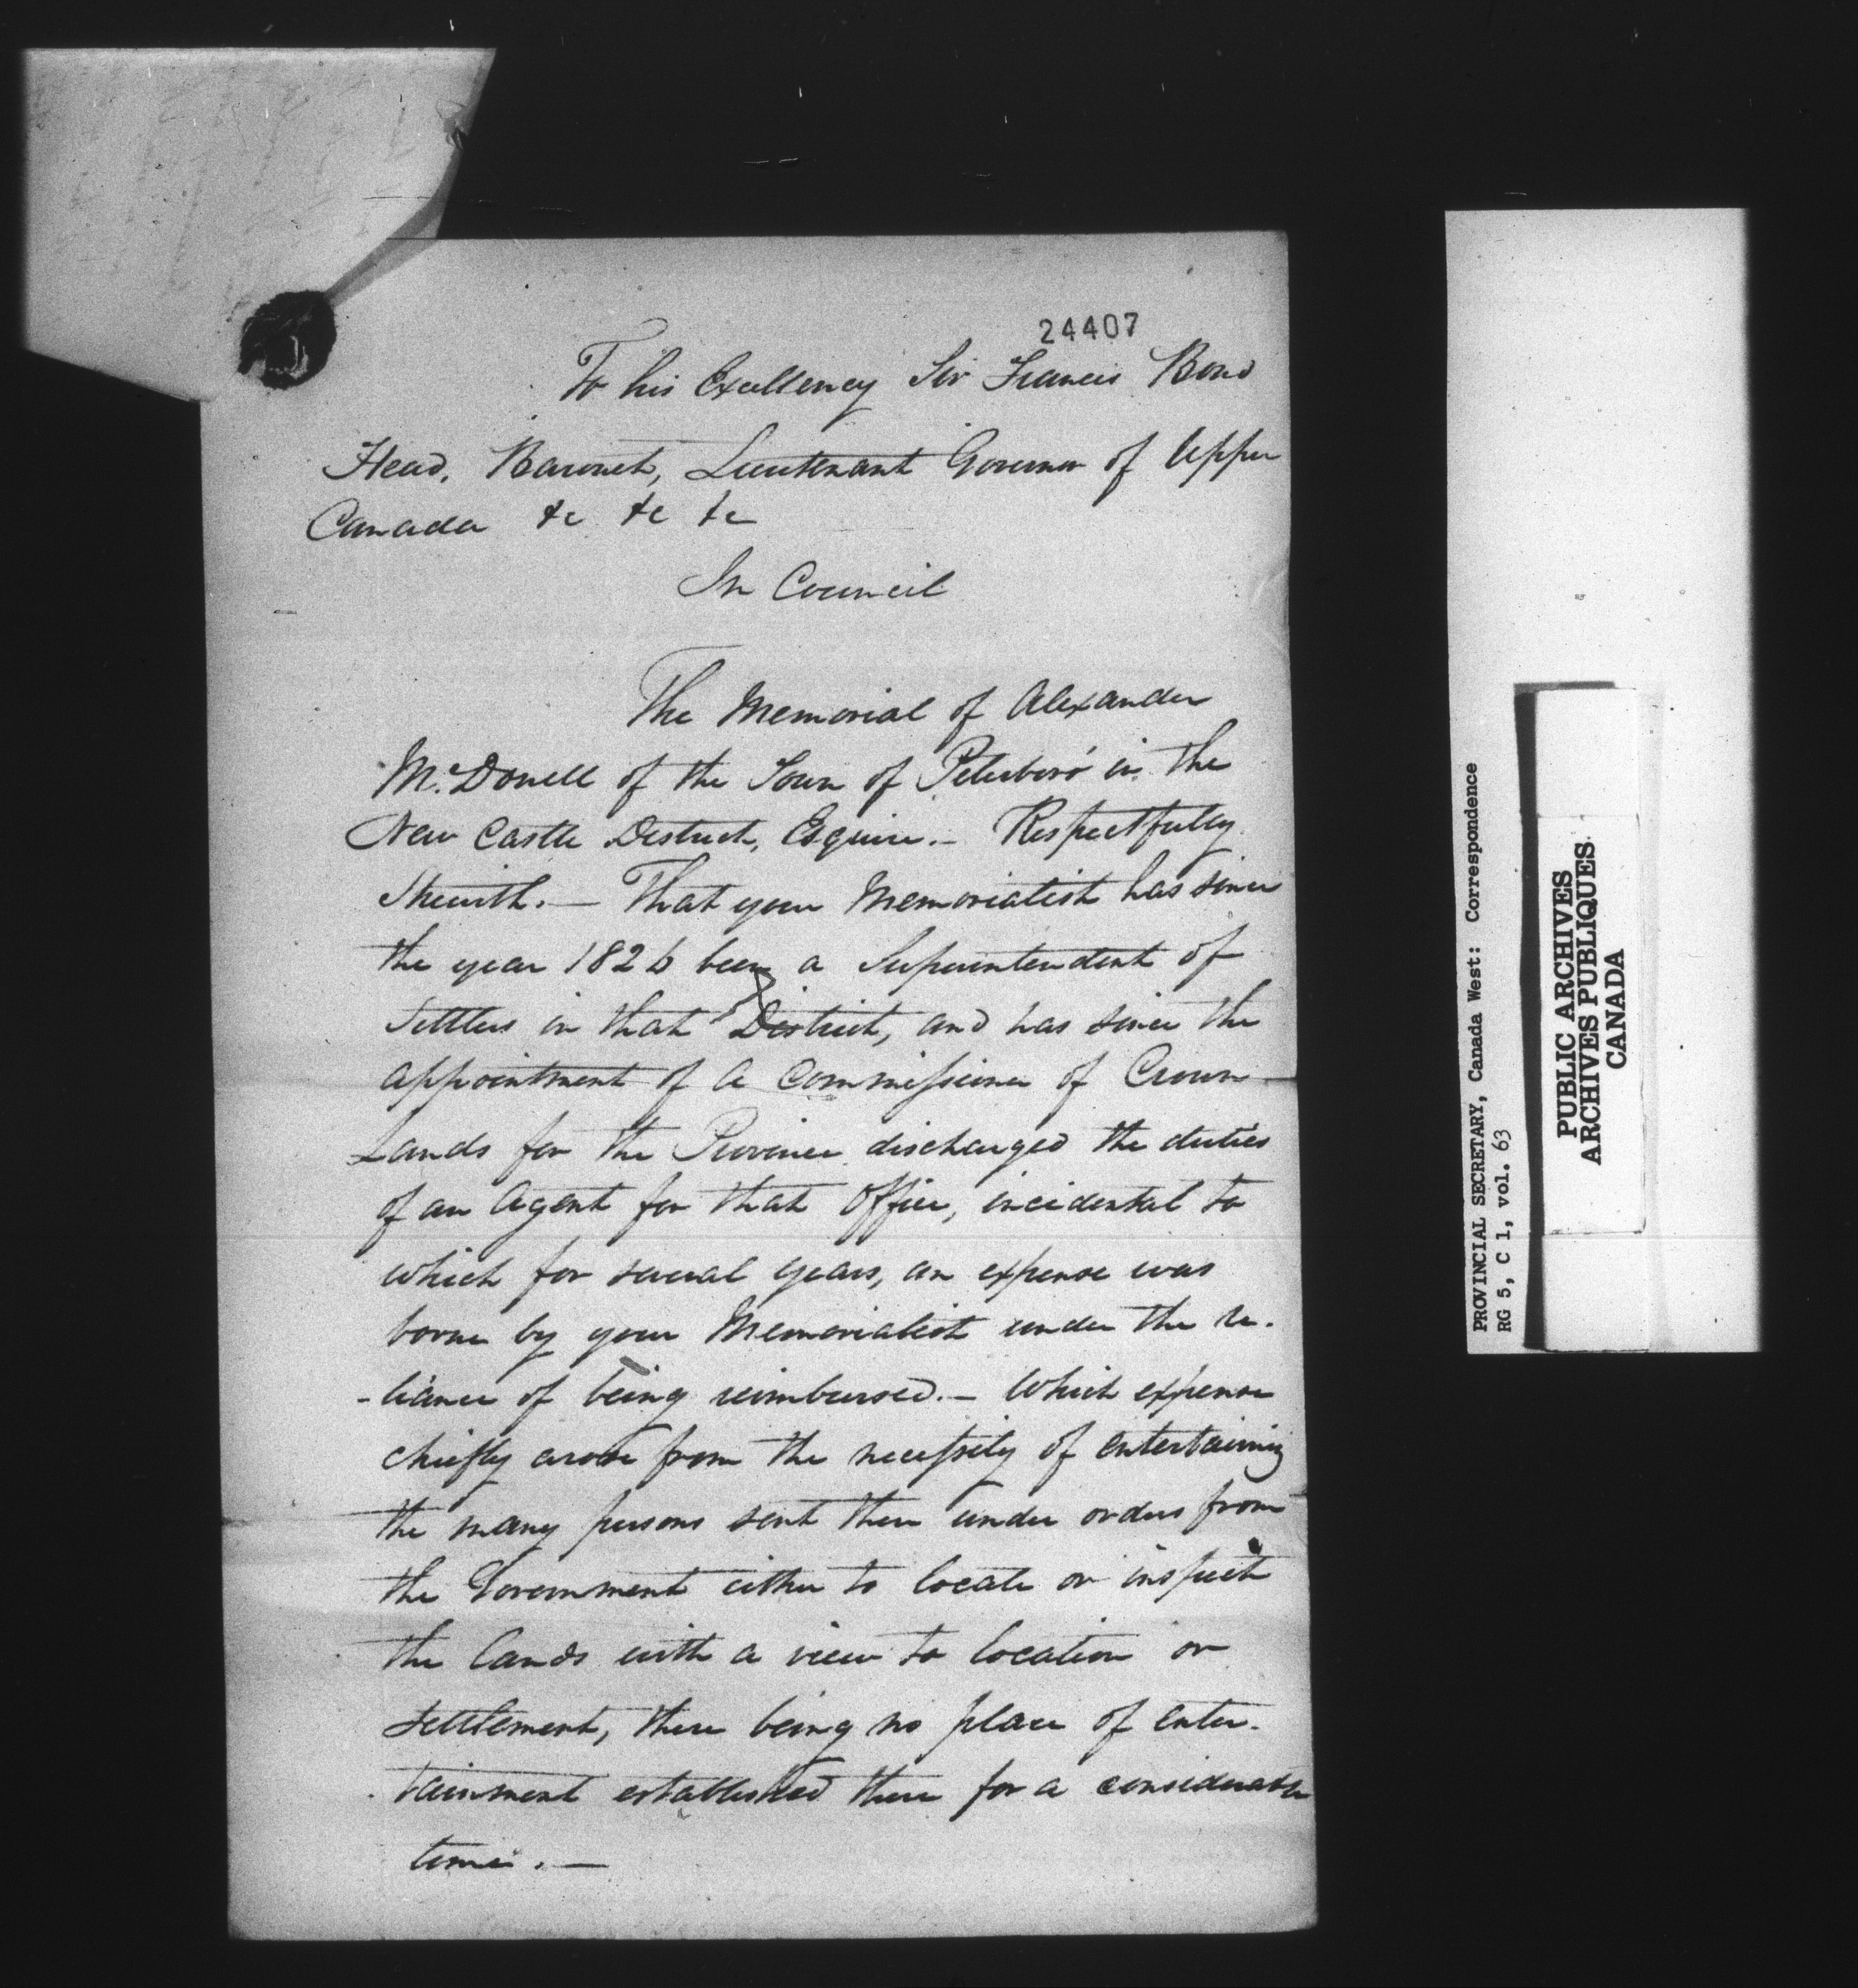 24407
To his Excellency Sir Francis Bond
Head, Baronet, Lieutenant Governor of Upper
Canada &c &c &c
In Council
The Memorial of Alexander
McDonell of the Town of Peterboro' in the
New Castle District, Esquire.— Respectfully
Sheweth.— That your Memorialist has since
the year 1826 been a Superintendent of
Settlers in that District, and has since the
appointment of a Commissioner of Crown
Lands for the Province discharged the duties
of an Agent for that Office, incidental to
which for several years, an expense was
borne by your Memorialist under the re-
-liance of being reimbursed.— Which expense
chiefly arose from the necessity of entertaining
the many persons sent there under orders from
the Government either to locate or inspect
the lands with a view to location or
settlement, there being no place of enter-
tainment established there for a considerable
time.—
PROVINCIAL SECRETARY, Canada West: Correspondence
RG 5, C 1, vol. 63
PUBLIC ARCHIVES
ARCHIVES PUBLIQUES
CANADA